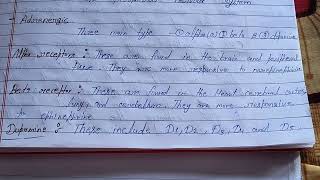 system
- Adrenergic
Three main type - ① alpha (α) ② beta & ③ dopamine
Alpha receptor : These are found in the brain and peripheral
They are more responsive to norepinephrine
Beta receptor : These are found in the Heart cerebral cortex
lung, and cerebellum. They are more responsive
to ephinephrine
Dopamine : These include D1, D2, D3, D4 and D5